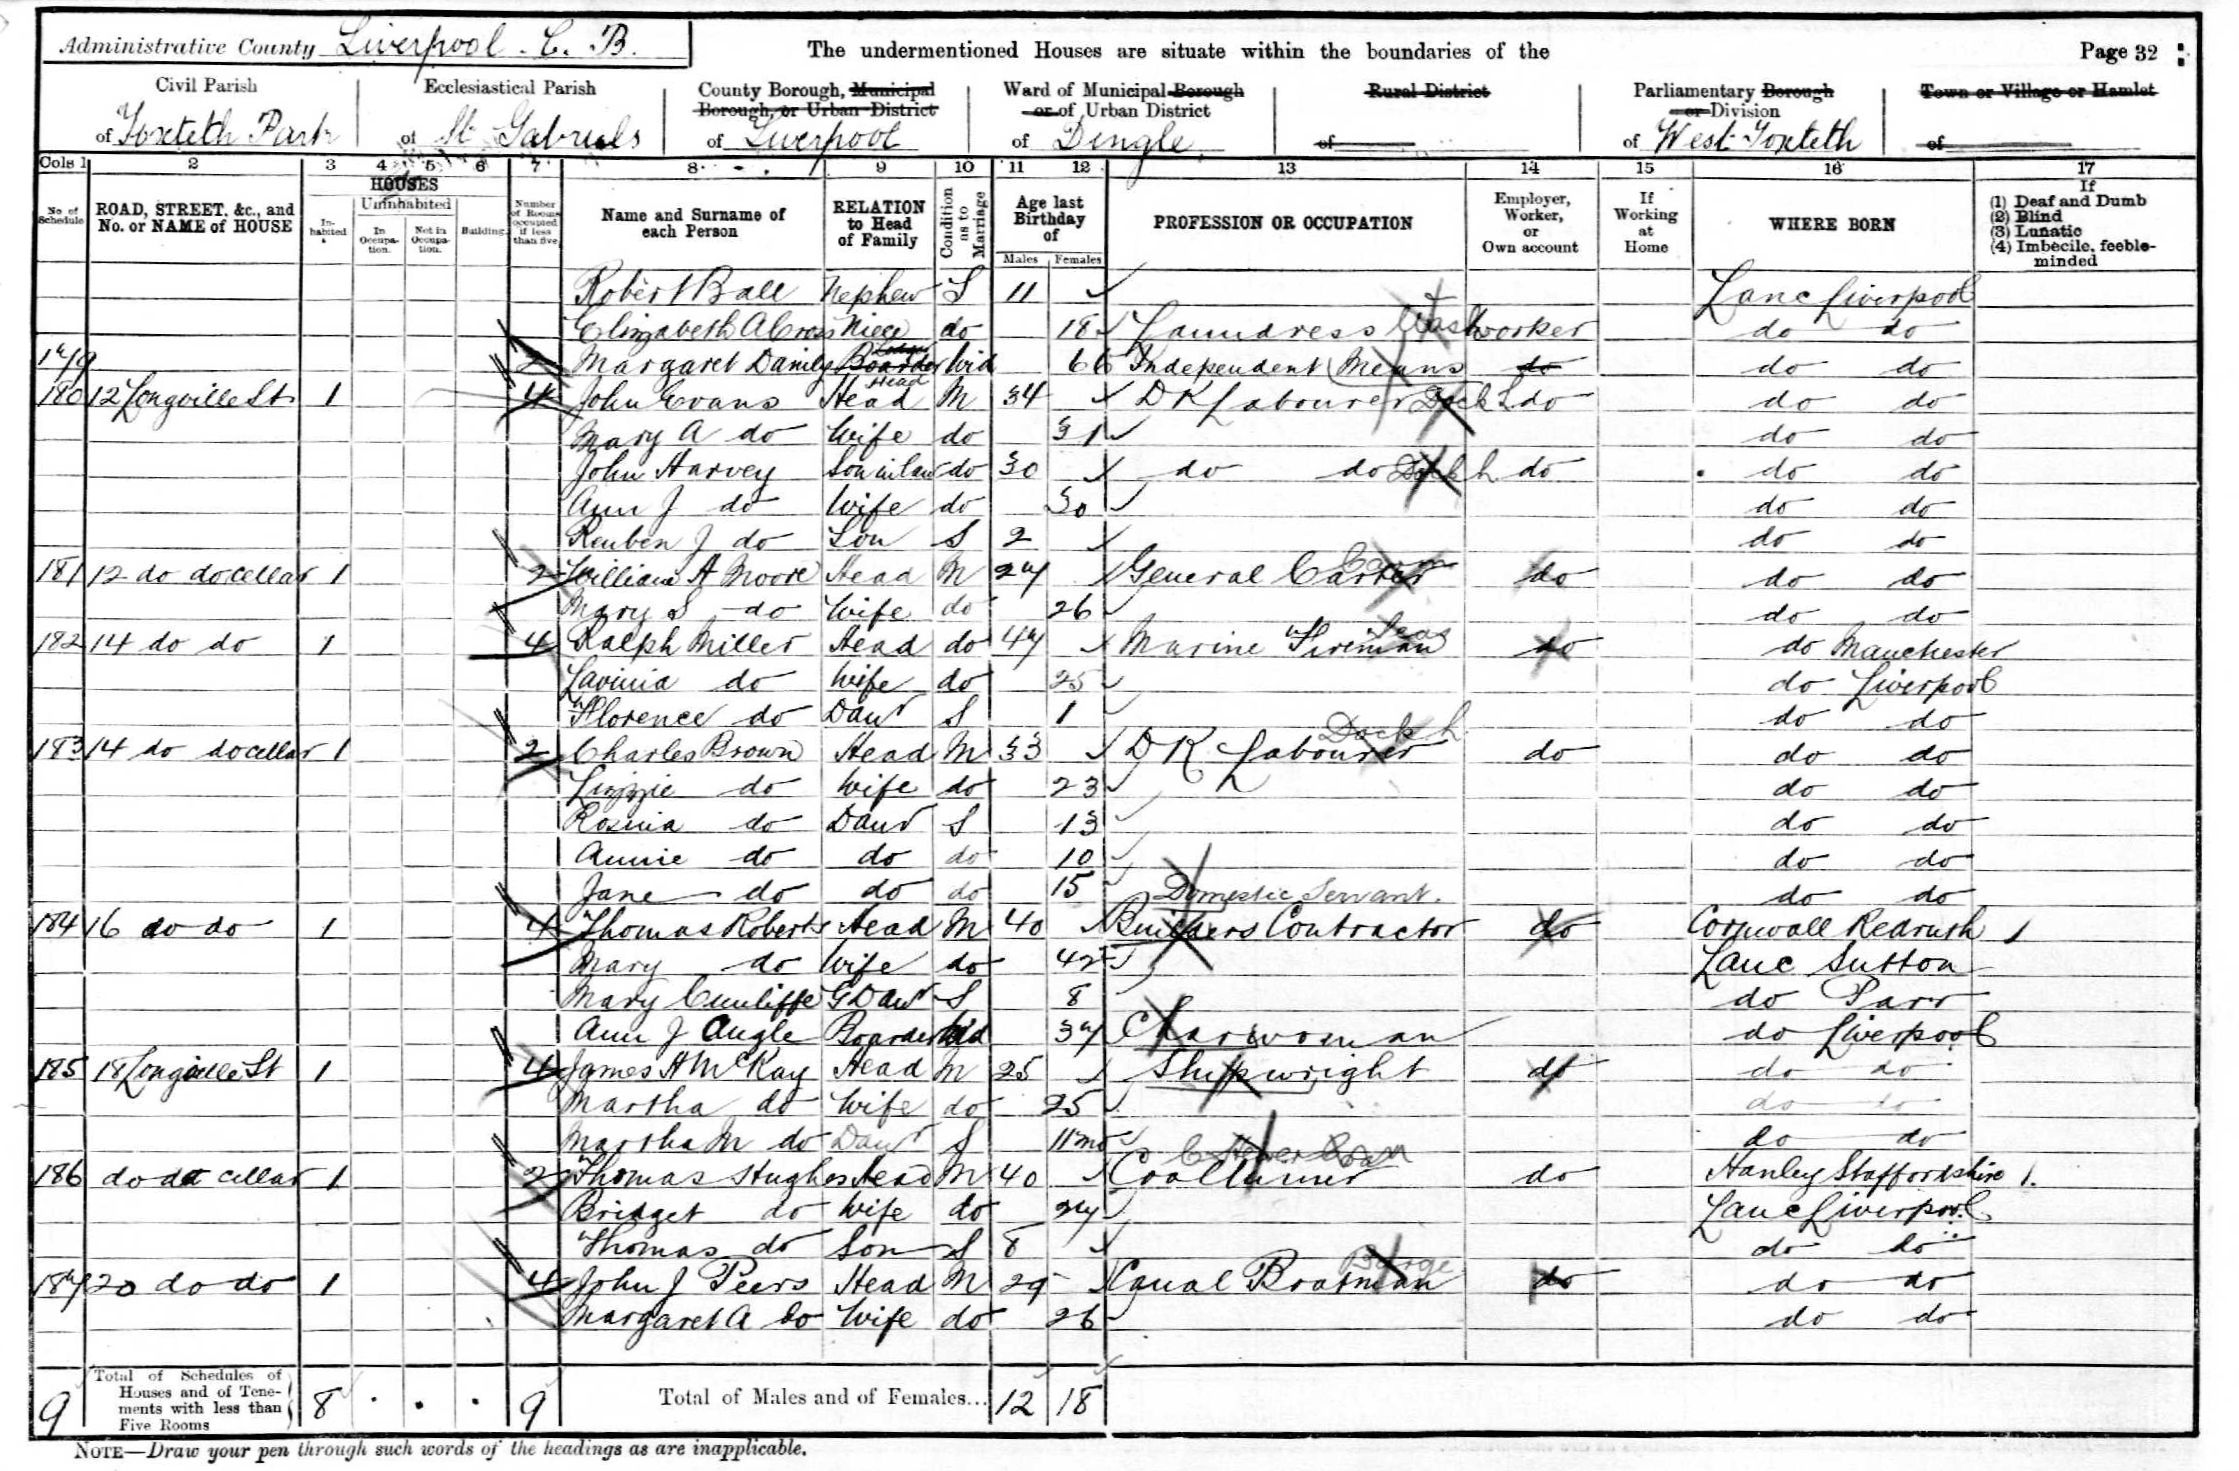 Administrative County Liverpool C. B.
The undermentioned Houses are situate within the boundaries of the
Page 32
Civil Parish of Toxteth Park
Ecclesiastical Parish of St Gabriels
County Borough, Municipal Borough, or Urban District of Liverpool
Ward of Municipal Borough or of Urban District of Dingle
Rural District of
Parliamentary Borough or Division of West Toxteth
Town or Village or Hamlet of
Cols 1 2 3 4 5 6 7 8 9 10 11 12 13 14 15 16 17
No of Schedule
ROAD, STREET, &c., and No. or NAME of HOUSE
HOUSES
Inhabited
Uninhabited
In Occupation.
Not in Occupation.
Building
Number of Rooms occupied if less than five
Name and Surname of each Person
RELATION to Head of Family
Condition as to Marriage
Age last Birthday of
Males Females
PROFESSION OR OCCUPATION
Employer, Worker, or Own account
If Working at Home
WHERE BORN
If
(1) Deaf and Dumb
(2) Blind
(3) Lunatic
(4) Imbecile, feeble-minded
Robert Ball Nephew S 11 Lanc Liverpool
Elizabeth A Cross Niece do 18 Laundress Wash worker do do
179 2 Margaret Boarder Lodger Head Wid 66 Independent Means do do do
180 12 Longville St 1 4 John Evans Head M 34 D K Labourer Dock L do do do
Mary A do Wife do 31 do do
John Harvey Son in law do 30 do do Dock L do do do
Ann J do Wife do 30 do do
Reuben J do Son S 2 do do
181 12 do do cellar 1 2 William A Moore Head M 27 General Carter Carm do do do
Mary S do Wife do 26 do do
182 14 do do 1 4 Ralph Miller Head do 47 Marine Fireman Seas do do Manchester
Lavinia do Wife do 25 do Liverpool
Florence do Daur S 1 do do
183 14 do do cellar 1 2 Charles Brown Head M 33 D K Labourer Dock L do do do
Lizzie do Wife do 23 do do
Rosina do Daur S 13 do do
Annie do do do 10 do do
Jane do do do 15 Domestic Servant. do do
184 16 do do 1 4 Thomas Roberts Head M 40 Builders Contractor do Cornwall Redruth 1
Mary do Wife do 42 Lanc Sutton
Mary Cunliffe G Daur S 8 do Parr
Ann J Angle Boarder Wid 37 Charwoman do Liverpool
185 18 Longville St 1 4 James H McKay Head M 25 Shipwright do do do
Martha do Wife do 25 do do
Martha M do Daur S 11 mo do do
186 do do cellar 1 2 Thomas Hughes Head M 40 Coal do Hanley Staffordshire 1.
Bridget do Wife do 27 Lanc Liverpool
Thomas do Son S 8 do do
187 20 do do 1 4 John J Peers Head M 29 Canal Boatman Barge do do do
Margaret A do Wife do 26 do do
9 Total of Schedules of Houses and of Tenements with less than Five Rooms 8 . . . 9 Total of Males and of Females... 12 18
NOTE—Draw your pen through such words of the headings as are inapplicable.